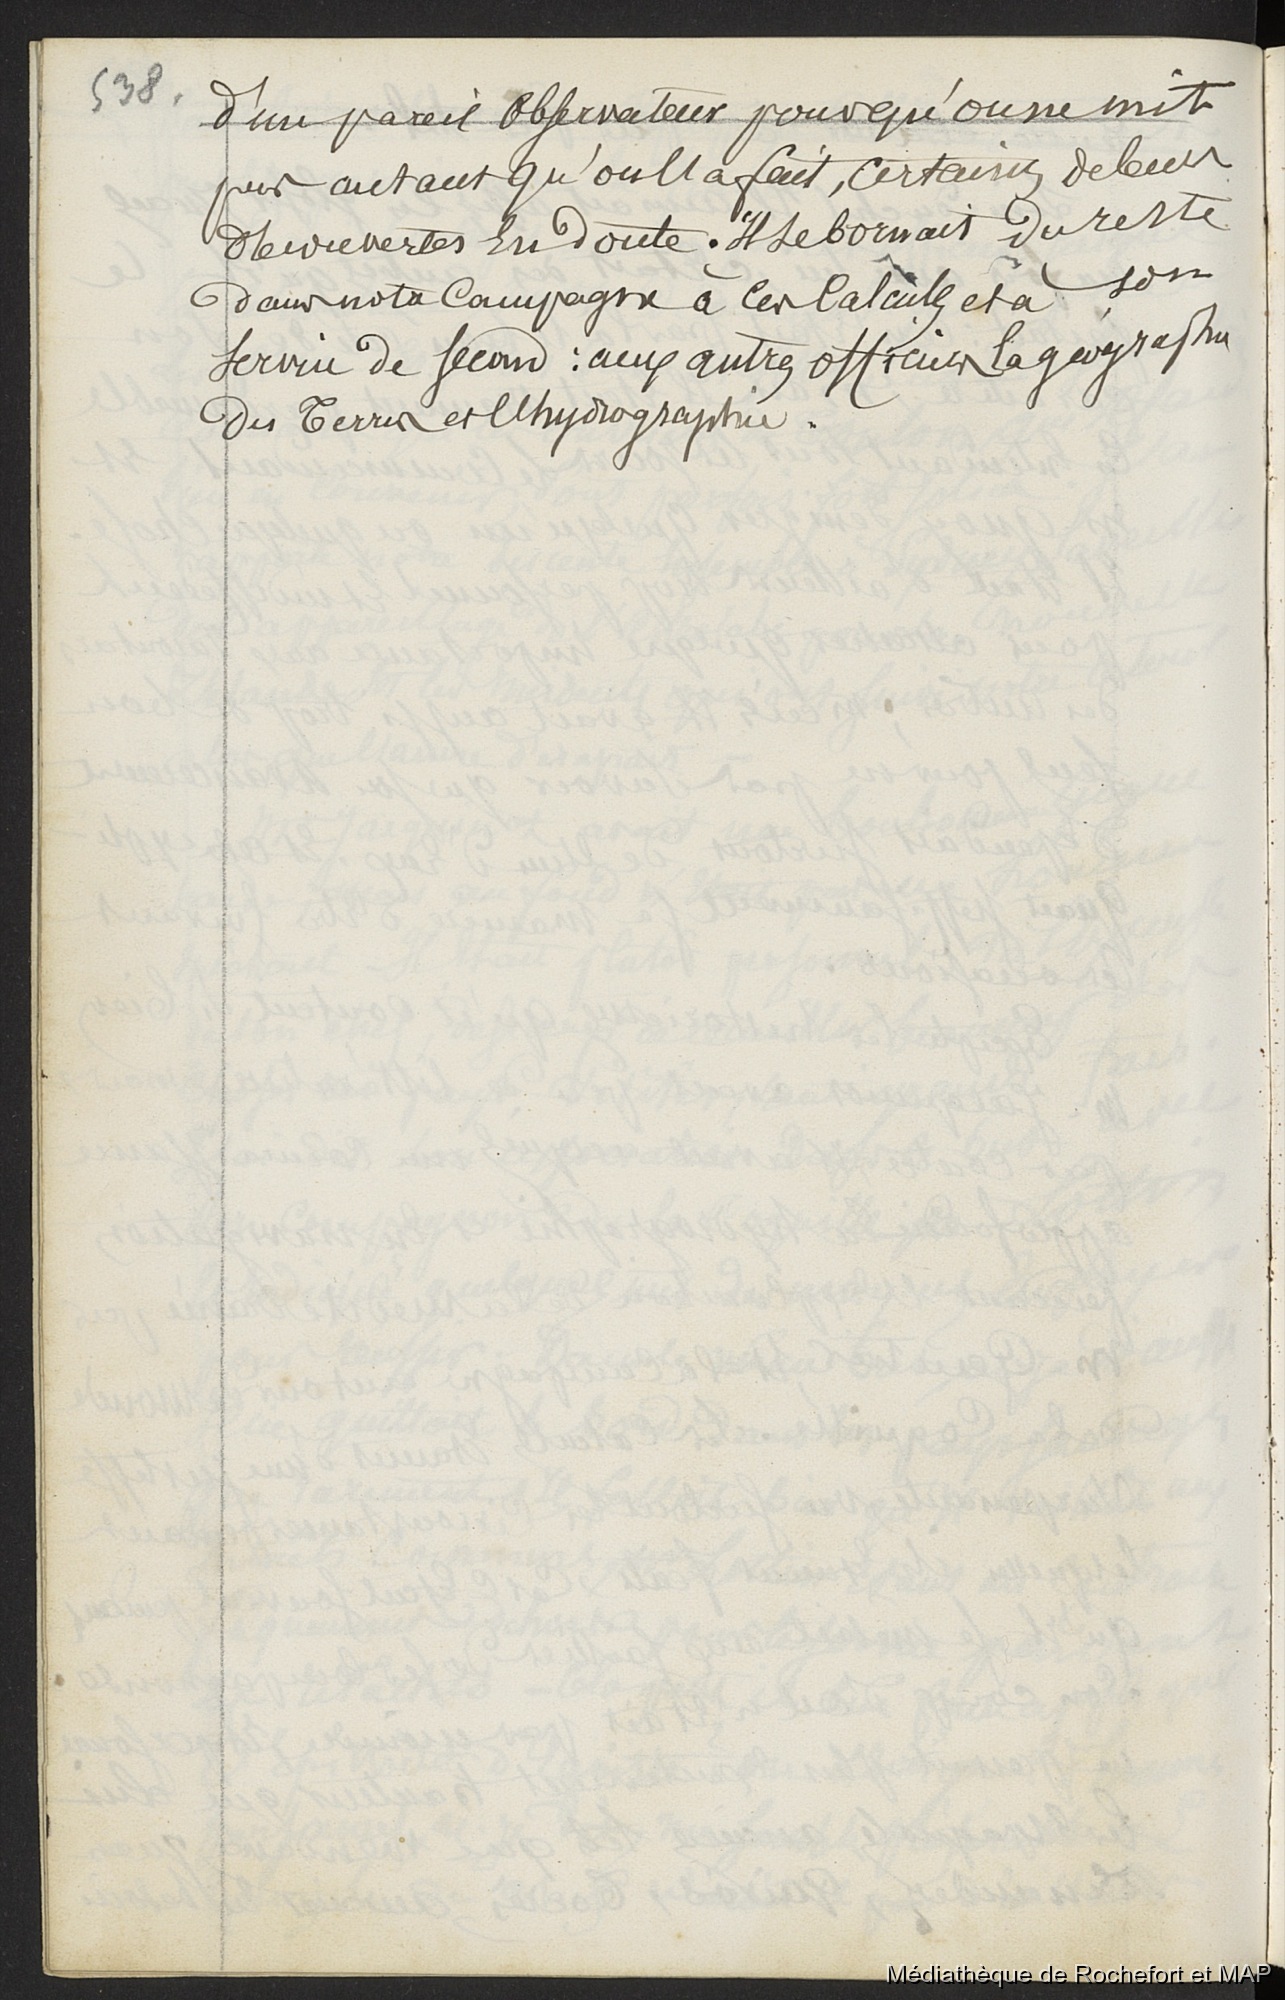 538.
d'un pareil observateur pour qu'on ne mit
pas autant qu'on l'a fait, certaines de leurs
découvertes en doute. Il se bornait du reste
dans notre campagne à ces calculs et à son
service de second : aux autres officiers la géographie
des Terres et l'hydrographie.
Médiathèque de Rochefort et MAP